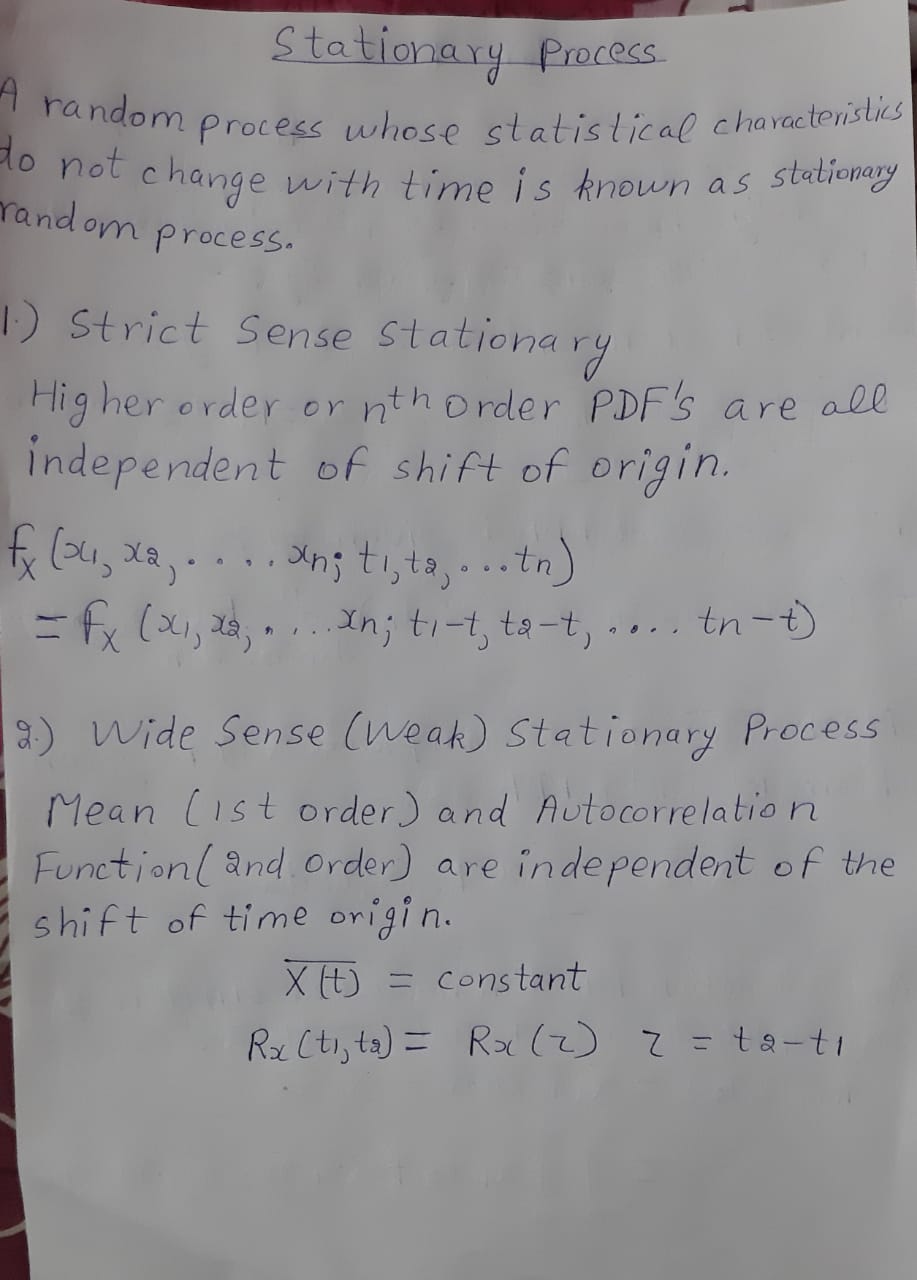 Stationary Process
A random process whose statistical characteristics
do not change with time is known as stationary
random process.
1.) Strict Sense Stationary
Higher order or nth order PDF's are all
independent of shift of origin.
fx (x1, x2, ..... xn; t1, t2, ... tn)
= fx (x1, x2, .... xn; t1-t, t2-t, .... tn-t)
2.) Wide Sense (Weak) Stationary Process
Mean (1st order) and Autocorrelation
Function (2nd order) are independent of the
shift of time origin.
X̅(̅t̅)̅ = constant
Rx (t1, t2) = Rx (τ) τ = t2-t1